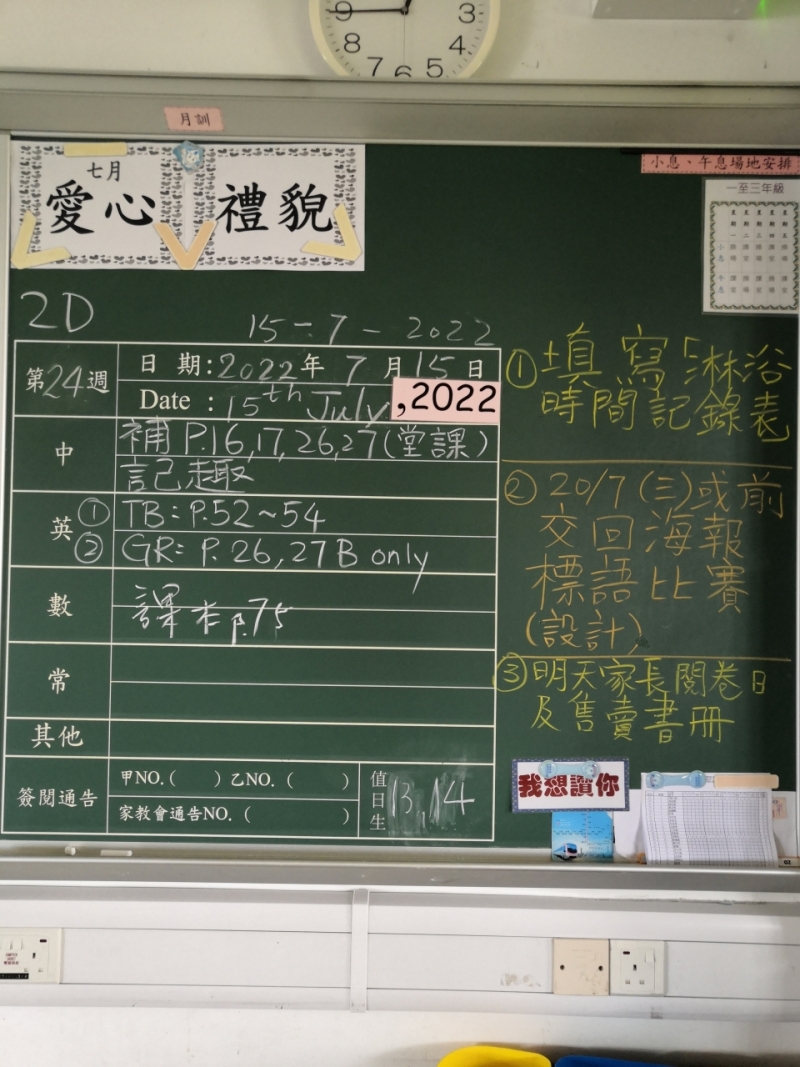 9
3
8
4
7
6
5
月訓
七月
愛心 禮貌
小息、午息場地安排
一至三年級
2D
15-7-2022
第24週
日期:2022年7月15日
Date : 15th July, 2022
中
補 P.16,17,26,27(堂課)
記趣
英
① TB: P.52~54
② GR: P. 26,27B only
數
課本 p.75
常
其他
簽閱通告
甲NO.( ) 乙NO. ( )
家教會通告NO. ( )
值日生
13,14
① 填寫「淋浴
時間記錄表
② 20/7 (三)或前
交回海報
標語比賽
(設計)
③ 明天家長閱卷日
及售賣書冊
我想讀你